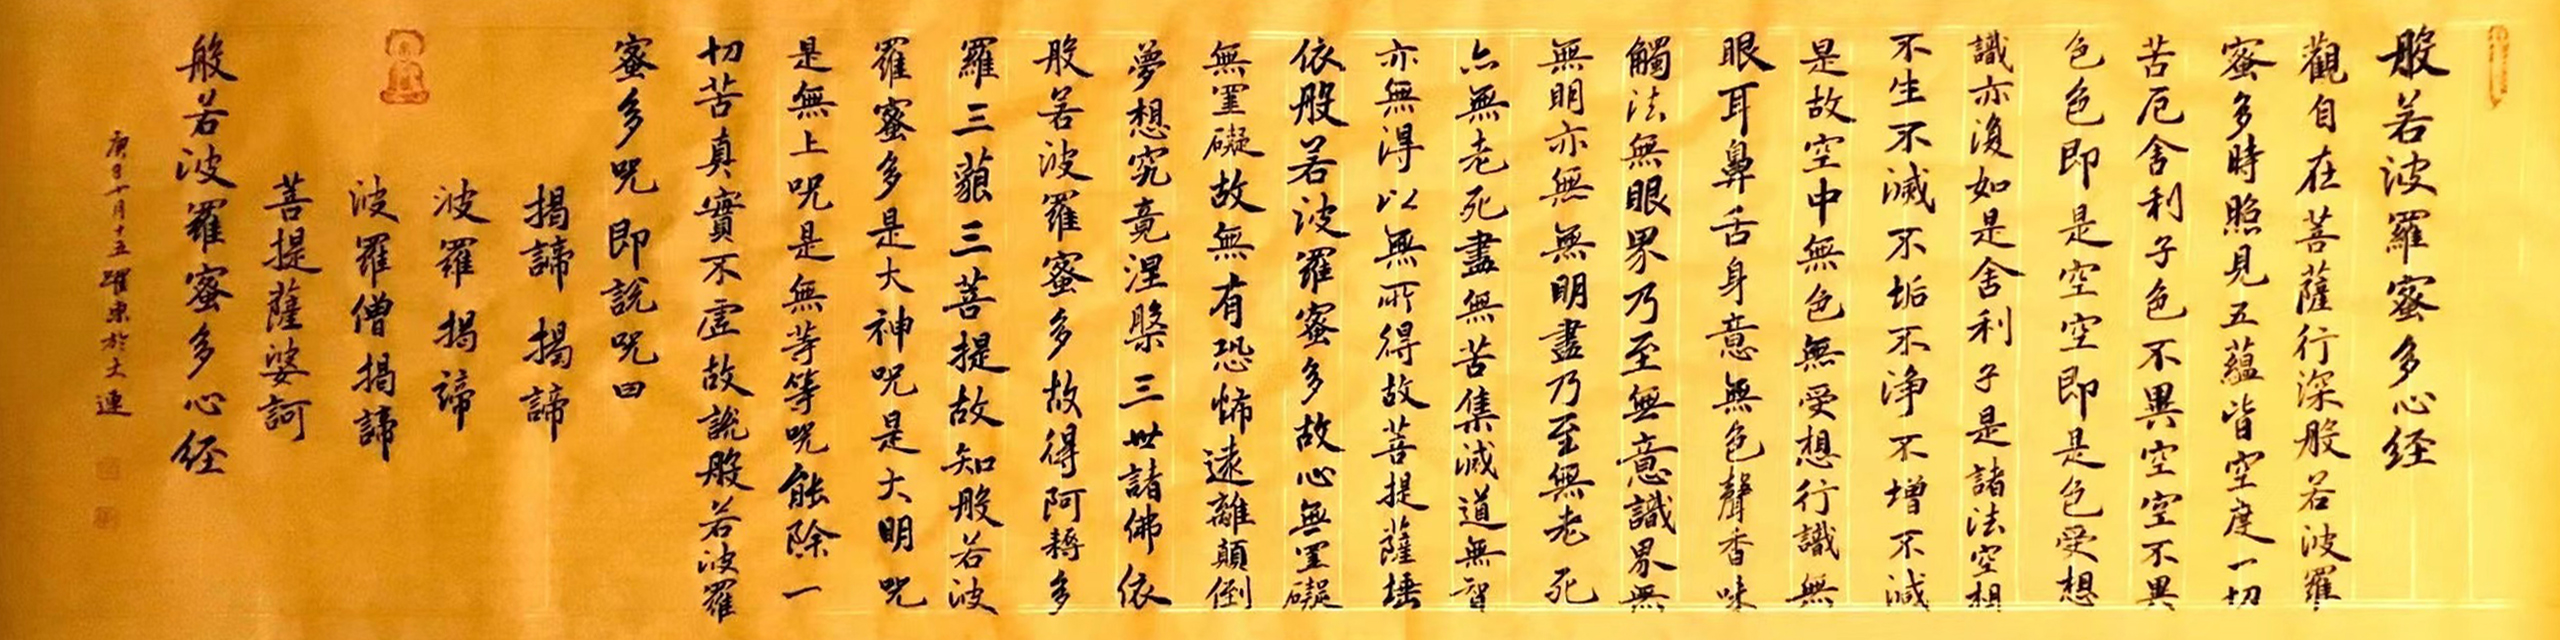 般若波羅蜜多心经
觀自在菩薩行深般若波羅
蜜多時照見五蘊皆空度一切
苦厄舍利子色不異空空不異
色色即是空空即是色受想
識亦復如是舍利子是諸法空相
不生不滅不垢不净不增不減
是故空中無色無受想行識無
眼耳鼻舌身意無色聲香味
觸法無眼界乃至無意識界無
無明亦無無明盡乃至無老死
亦無老死盡無苦集滅道無智
亦無得以無所得故菩提薩埵
依般若波羅蜜多故心無罣礙
無罣礙故無有恐怖遠離顛倒
夢想究竟涅槃三世諸佛依
般若波羅蜜多故得阿耨多
羅三藐三菩提故知般若波
羅蜜多是大神咒是大明咒
是無上咒是無等等咒能除一
切苦真實不虛故說般若波羅
蜜多咒即說咒曰
揭諦揭諦
波羅揭諦
波羅僧揭諦
菩提薩婆訶
般若波羅蜜多心经
庚子十月十五躍東於大連